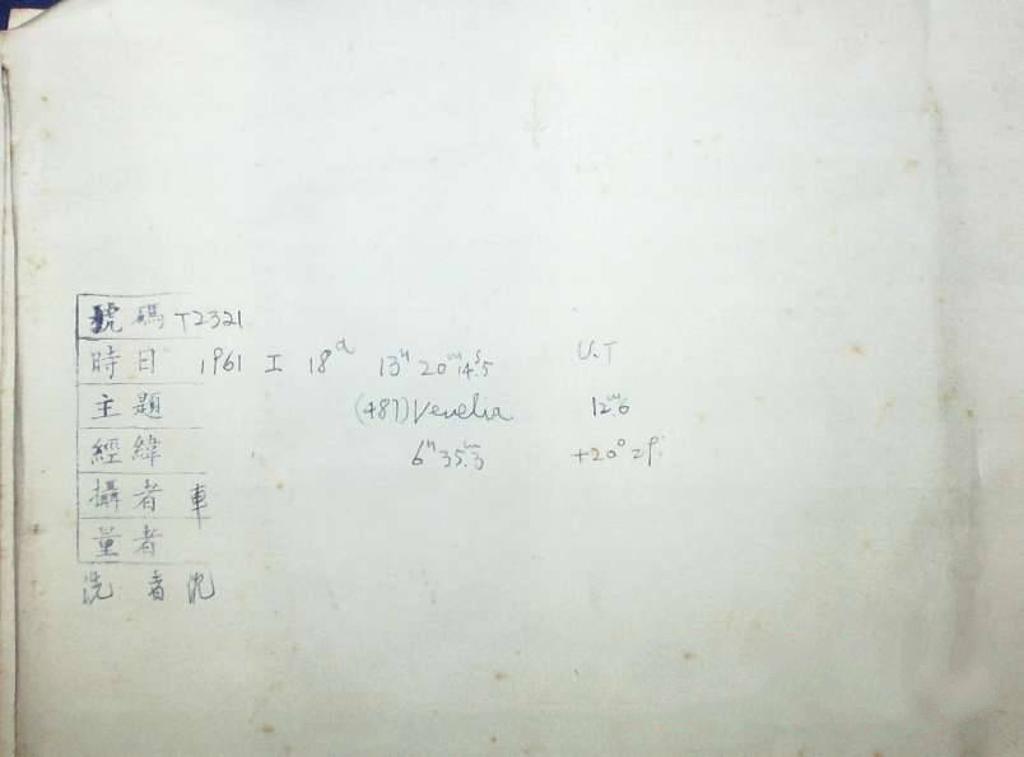 號碼 T2321
時日 1961 I 18ᵈ 13ʰ 20ᵐ 14ˢ.5 U.T
主題 (487) Venelia 12ᵐ.6
經緯 6ʰ 35ᵐ.3 +20°29'
攝者 車
量者
洗者 沈